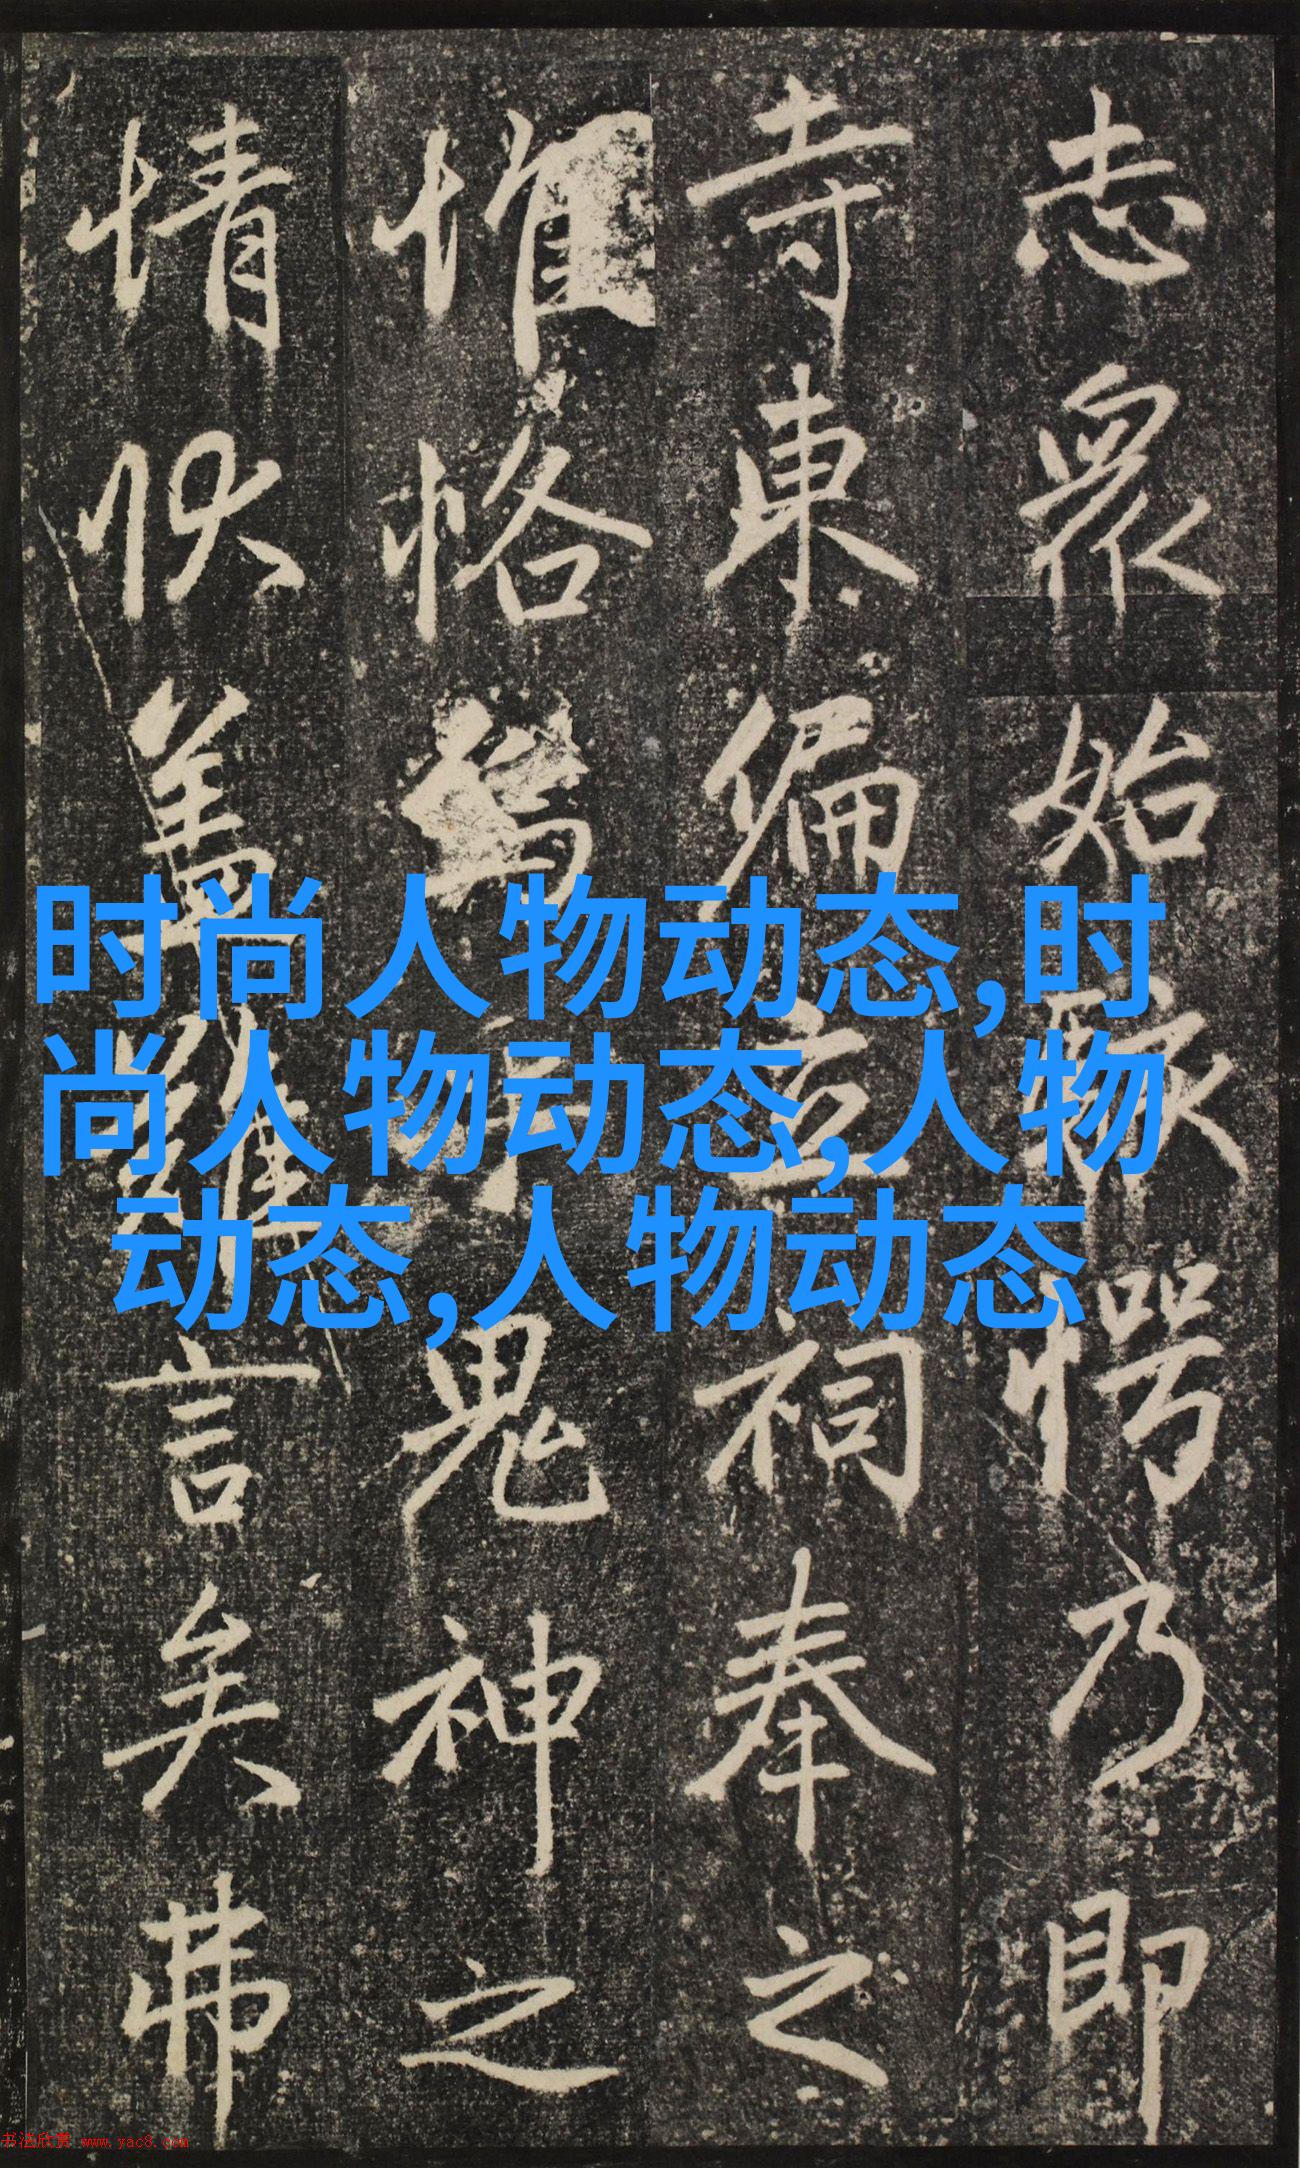 志眾始駭愕乃即
寺東偏立祠奉之
惟恪鬼神之
情狀蓋難言矣弗
时尚人物动态,时
尚人物动态,人物
动态,人物动态
书法欣赏 www.yac8.com